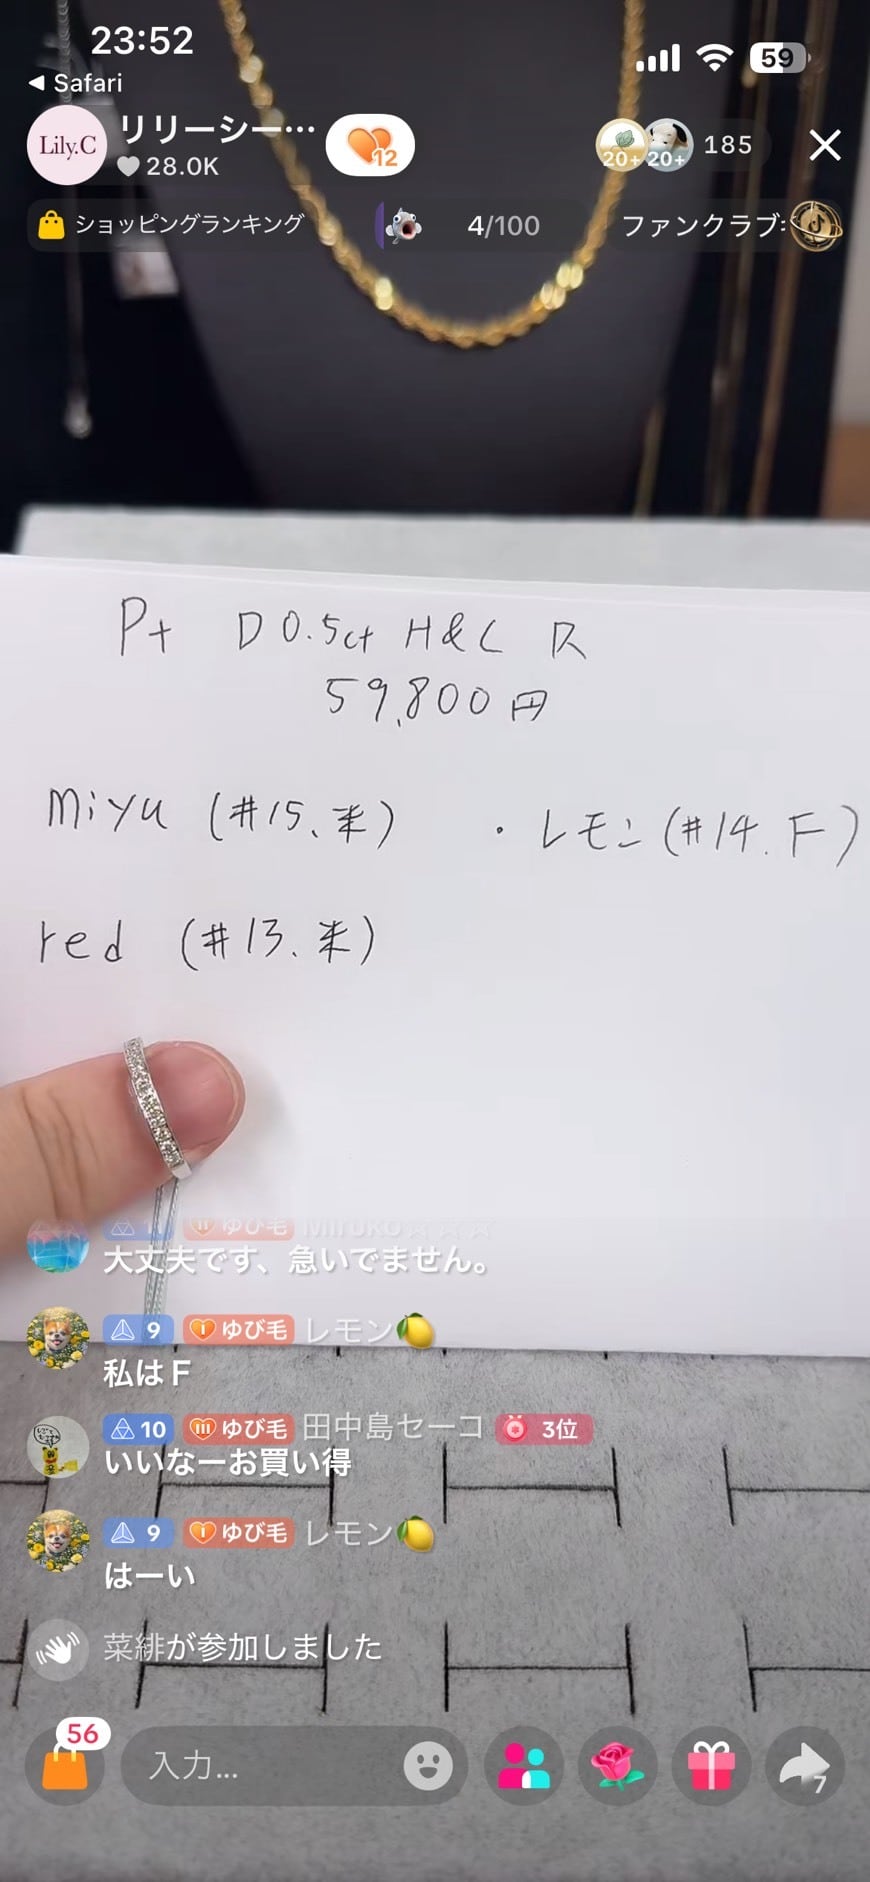 23:52
59
Safari
Lily.C
リリーシー…
28.0K
12
20+
20+
185
ショッピングランキング
4/100
ファンクラブ
Pt D0.5ct H&C R
59,800円
miyu (#15、米)
・レモン(#14.F)
red (#13.米)
ゆび毛
大丈夫です、急いでません。
9 ゆび毛 レモン🍋
私はF
10 ゆび毛 田中島セーコ 3位
いいなーお買い得
9 ゆび毛 レモン🍋
はーい
菜緋が参加しました
56
入力...
7